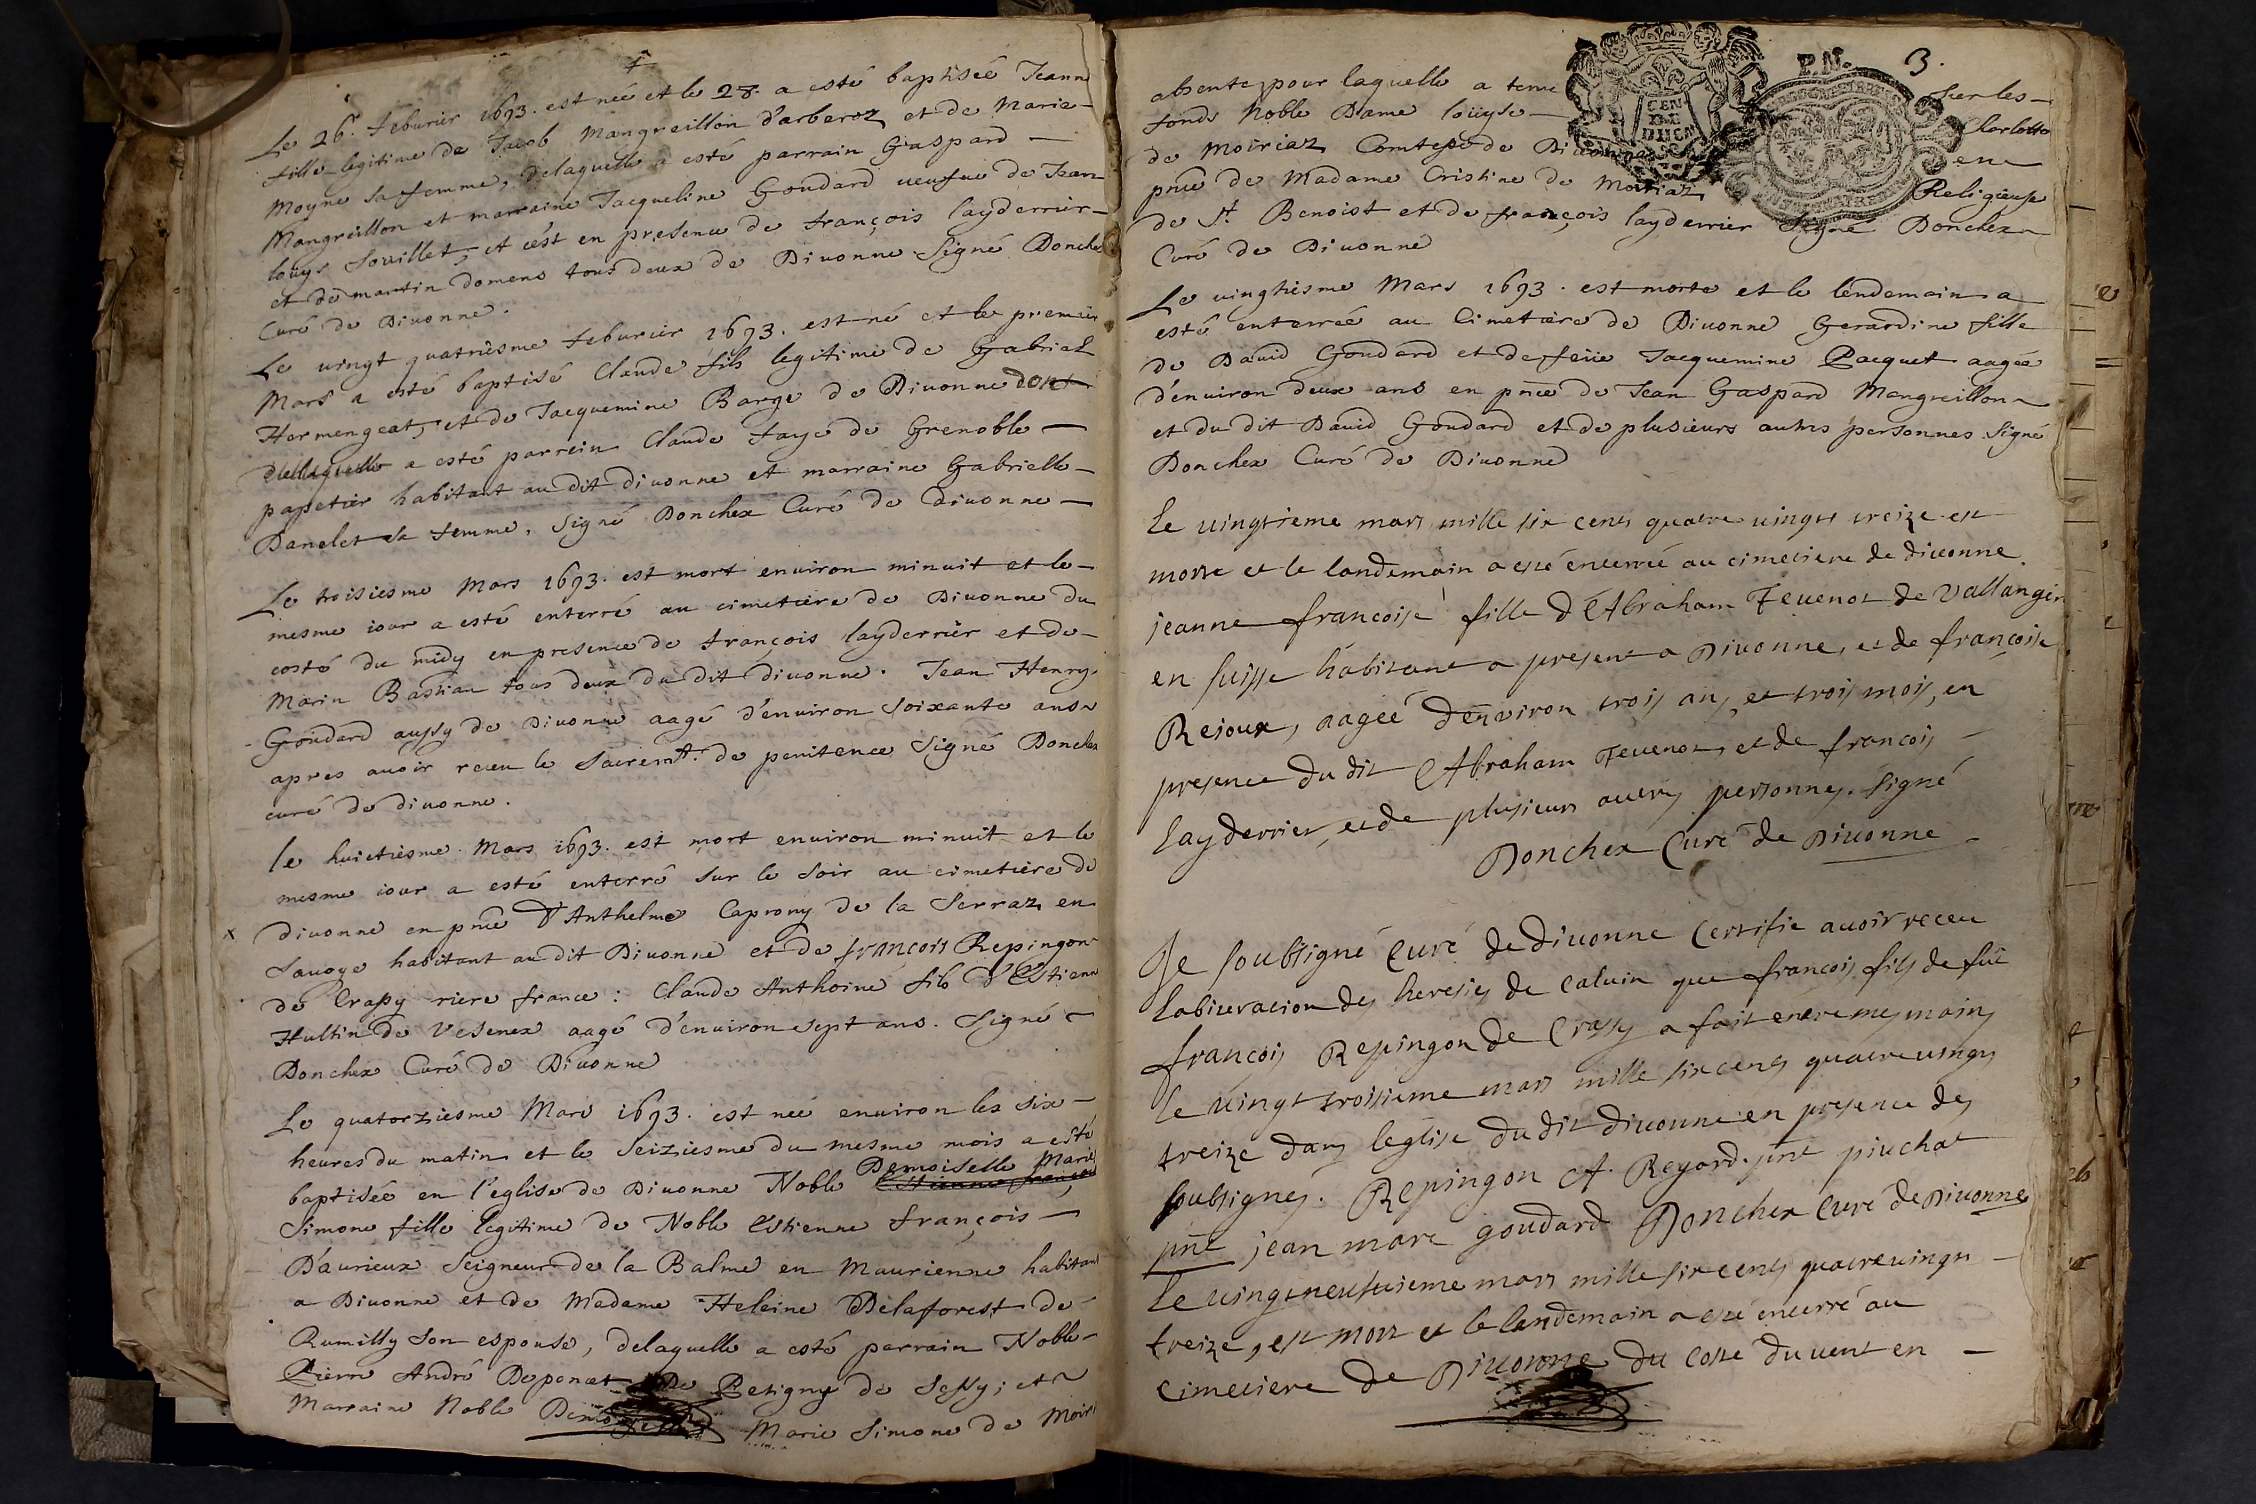 Le 26e. feburier 1693. est née et le 28. a esté baptisée Jeanne
fille legitime de Jacob Mangreillon d'arberoz et de Marie
Moyne sa femme, delaquelle a esté parrain Gaspard
Mangreillon et marraine Jacqueline Goudard ueufue de Jean
loüys Souillet, et c'est en presence de françois layderrier
et de martin domene tous deux de Diuonne Signé Donchex
Curé de Diuonne.
Le uingt quatriesme feburier 1693. est né et le premier
Mars a esté baptisé Claude fils legitime de Gabriel
Hermengeat, et de Jacquemine Barge de Diuonne dont
a esté parrein Claude faye de Grenoble
papetier habitant au dit diuonne et marraine Gabrielle
Danelet sa femme, Signé Donchex Curé de diuonne
Le troisiesme Mars 1693. est mort enuiron minuit et le
mesme iour a esté enterré au cimetiere de Diuonne du
costé du midy en presence de françois layderrier et de
Marin Bastian tous deux du dit diuonne. Jean Henry
Goudard aussy de Diuonne aagé d'enuiron soixante ans
apres auoir receu le Sacremt. de penitence Signé Donchex
curé de diuonne.
le huictiesme Mars 1693. est mort enuiron minuit et le
mesme iour a esté enterré sur le soir au cimetiere de
diuonne en pnce d'Anthelme Caprony de la Serraz en
Sauoye habitant au dit Diuonne et de françois Repingon
de Crassy riere france: Claude Anthoine fils d'Estienne
Hultin de Vesenex aagé d'enuiron sept ans. Signé
Donchex Curé de Diuonne
Le quatorziesme Mars 1693. est née enuiron les six
heures du matin et le Seiziesme du mesme mois a esté
baptisée en l'eglise de Diuonne Noble Demoiselle Marie
Simone fille legitime de Noble Estienne françois
D'aurieux Seigneur de la Balme en Maurienne habitant
a Diuonne et de Madame Heleine Delafforest de
Rumilly son espouse, delaquelle a esté parrain Noble
Pierre André Deponat De Petigny de Sessy; et
Marraine Noble Demoiselle Marie Simone de Moiri
P.N. 3.
absente pour laquelle a tenu sur les
fonds Noble Dame loüyse Charlotte
de Moiriaz Comtesse de Diuonne en
pnce de Madame Cristine de Moiriaz Religieuse
de St. Benoist et de françois layderrier Signé Donchex
Curé de Diuonne
Le uingtiesme Mars 1693. est morte et le lendemain a
esté enterrée au Cimetiere de Diuonne Gerardine fille
de Dauid Goudard et de feüe Jacquemine Pacquet aagée
d'enuiron deux ans en pnce de Jean Gaspard Mangreillon
et du dit Dauid Goudard et de plusieurs autres personnes Signé
Donchex Curé de Diuonne
Le uingtieme mars mille six cents quatre uingts treize est
morte et le landemain a esté enterrée au cimetiere de diuonne
jeanne françoise fille d'Abraham Teuenot de Vallangin
en suisse habitant a present a Diuonne, et de françoise
Rejoux, aagée d'enuiron trois ans, et trois mois, en
presence du dit Abraham Teuenot, et de françois
layderrier, et de plusieurs autres personnes. Signé
Donchex Curé de Diuonne
Je soubsigné Curé de Diuonne Certifie auoir receu
labiuration des heresies de Caluin que françois fils de fû
françois Repingon de Crassy a fait entre mes mains
le uingt troisieme mars mille six cents quatre uingts
treize dans l'eglise du dit diuonne en presence des
soubsignes. Repingon A. Regard pnt piuchat
pnt jean marc goudard Donchex Curé de Diuonne
Le uingt neufuieme mars mille six cents quatre uingts
treize, est mort et le landemain a esté enterré au
cimetiere de Diuonne du costé du uent en